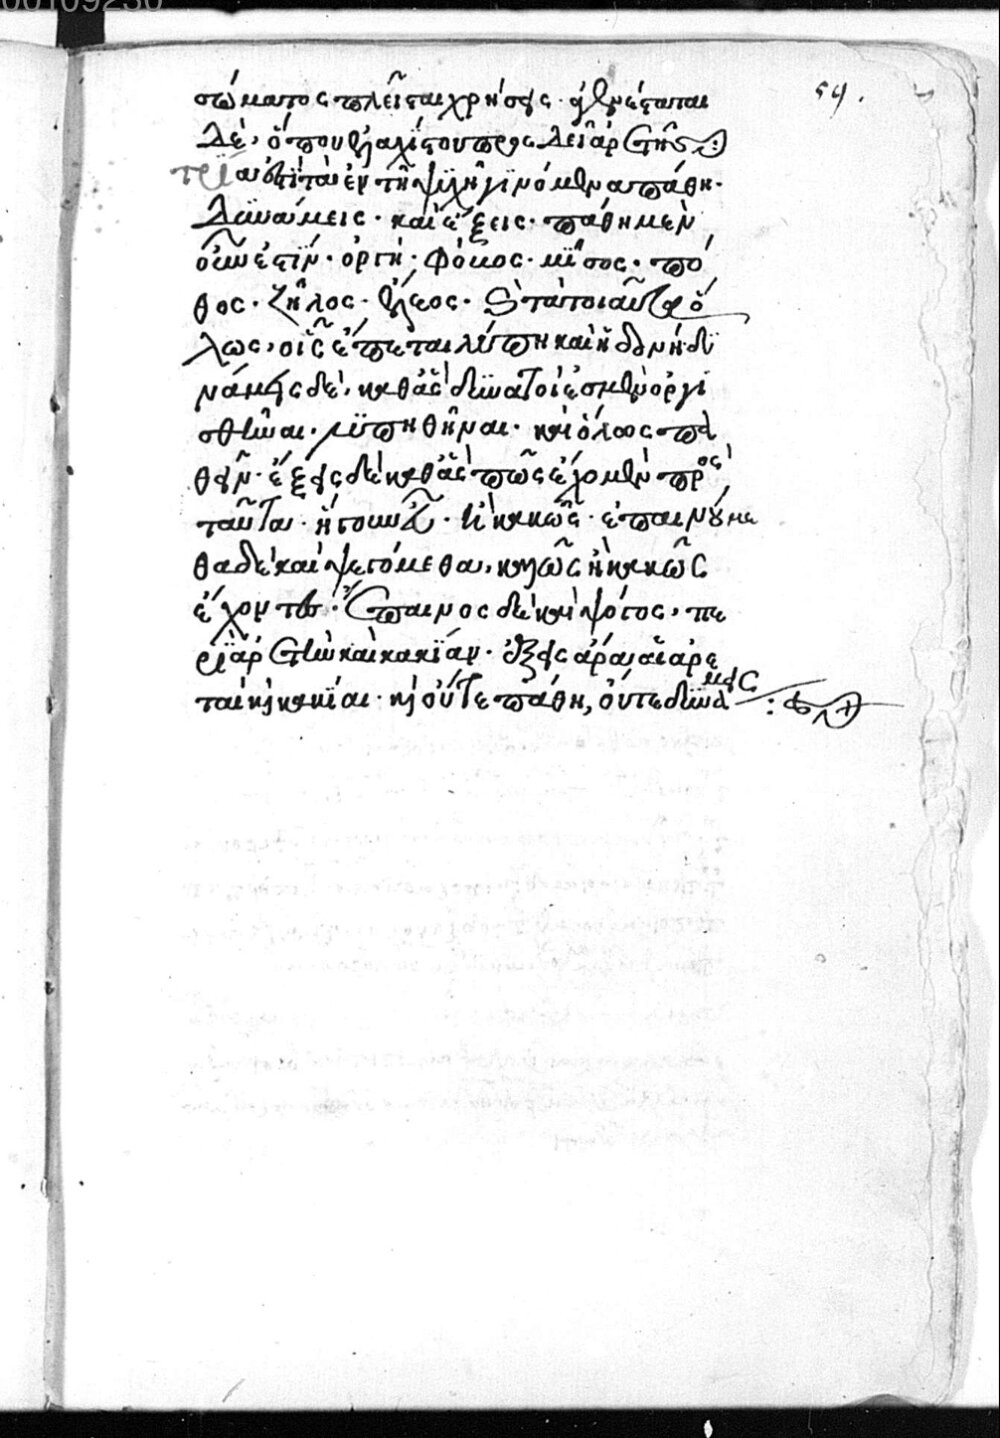 00109230
59.
στόματος πλεῖσται χρήσεις. γίνεται
δέ, ὅπου
τρία
ταῦτα ἐν τῇ ψυχῇ γινόμενα πάθη.
Δυνάμεις. καὶ ἕξεις. πάθη μὲν
οὖν ἐστίν. ὀργή. φόβος. μῖσος. πό
θος. ζῆλος. ἔλεος. καὶ τὰ τοιαῦτα ὅ
λως, οἷς ἕπεται λύπη καὶ ἡδονή. δυ
νάμεις δὲ, καθ' ἃς δυνατοί ἐσμεν ὀργι
σθῆναι. λυπηθῆναι. καὶ ὅλως πα
θεῖν. ἕξεις δὲ καθ' ἃς πῶς ἔχομεν πρὸς
ταῦτα. ἤτοι εὖ. ἢ κακῶς. ἐπαινούμε
θα δὲ καὶ ψεγόμεθα, καλῶς ἢ κακῶς
ἔχοντες. Ἔπαινος δὲ καὶ ψόγος, πε
ρὶ ἀρετὴν καὶ κακίαν. ἕξεις ἄρα, αἱ ἀρε
ταὶ καὶ κακίαι. καὶ οὔτε πάθη, οὔτε δυνάμεις